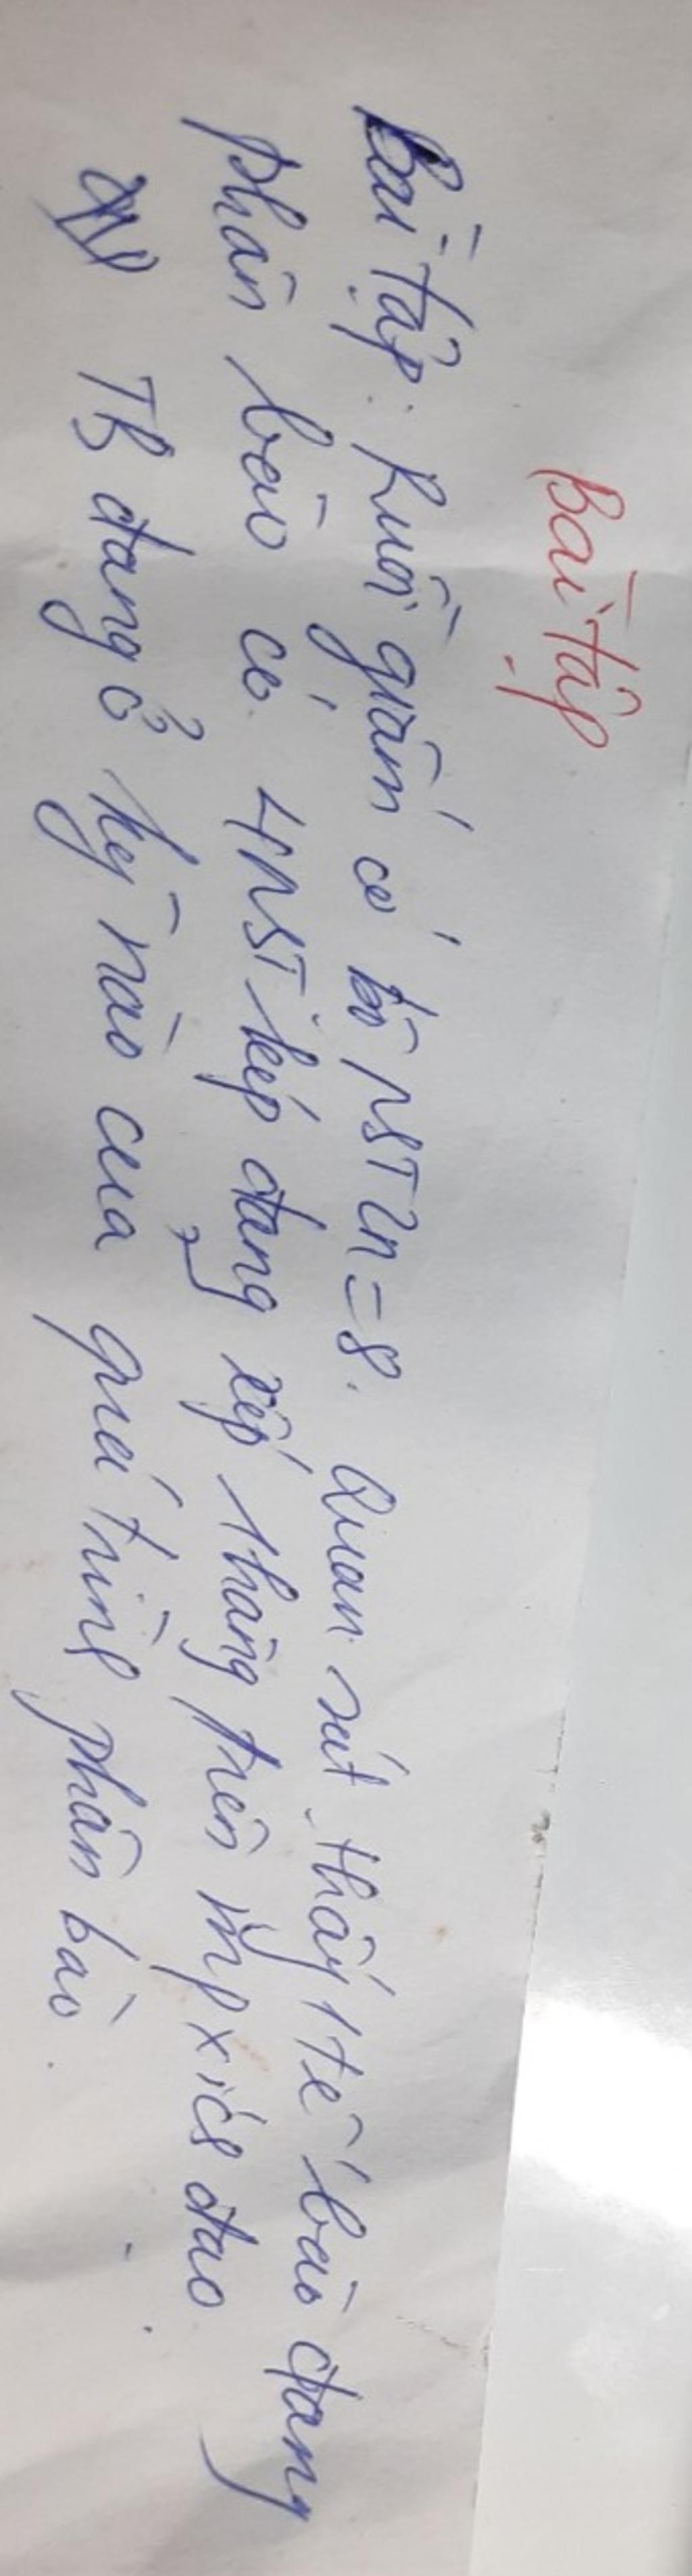 Bài tập
Bài tập: Ruồi giấm có bộ NST 2n = 8. Quan sát thấy 1 tế bào đang
phân bào có 4 NST kép đang xếp 1 hàng trên mp xích đạo.
TB đang ở kỳ nào của quá trình phân bào.